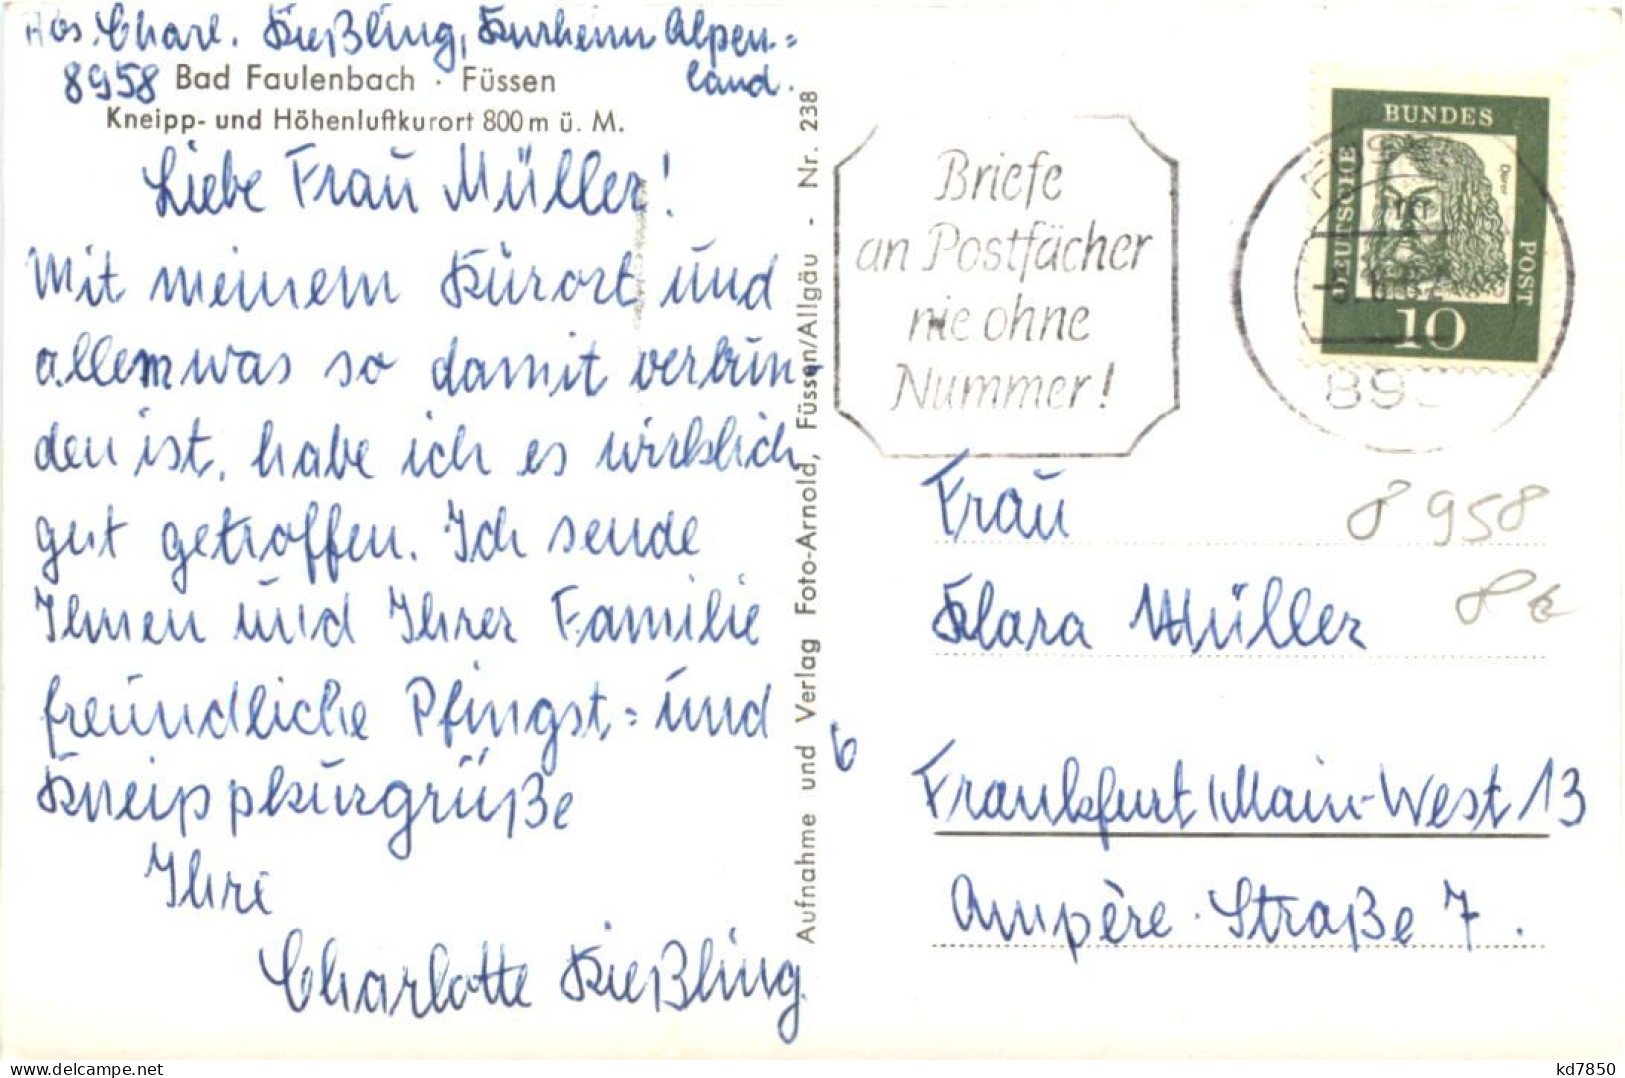 Abs. Charl. Kießling, Kurheim Alpen=
land.
8958 Bad Faulenbach · Füssen
Kneipp- und Höhenluftkurort 800 m ü. M.
Liebe Frau Müller!
Mit meinem Kurort und
allem was so damit verbun
den ist, habe ich es wirklich
gut getroffen. Ich sende
Ihnen und Ihrer Familie
freundliche Pfingst= und
Kneippkurgrüße
Ihre
Charlotte Kießling.
Aufnahme und Verlag Foto-Arnold, Füssen/Allgäu - Nr. 238
Briefe
an Postfächer
nie ohne
Nummer!
BUNDES
DEUTSCHE
POST
Dürer
10
89
8958
8€
6
Frau
Klara Müller
Frankfurt/Main-West 13
Ampère-Straße 7.
kd7850